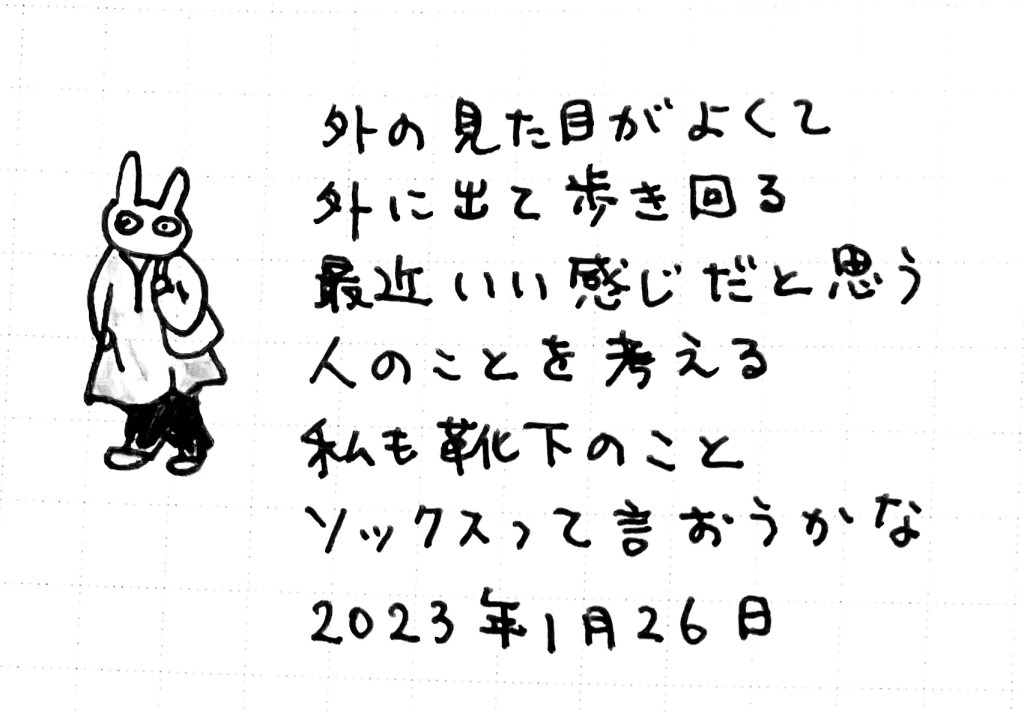 外の見た目がよくて
外に出て歩き回る
最近いい感じだと思う
人のことを考える
私も靴下のこと
ソックスって言おうかな
2023年1月26日